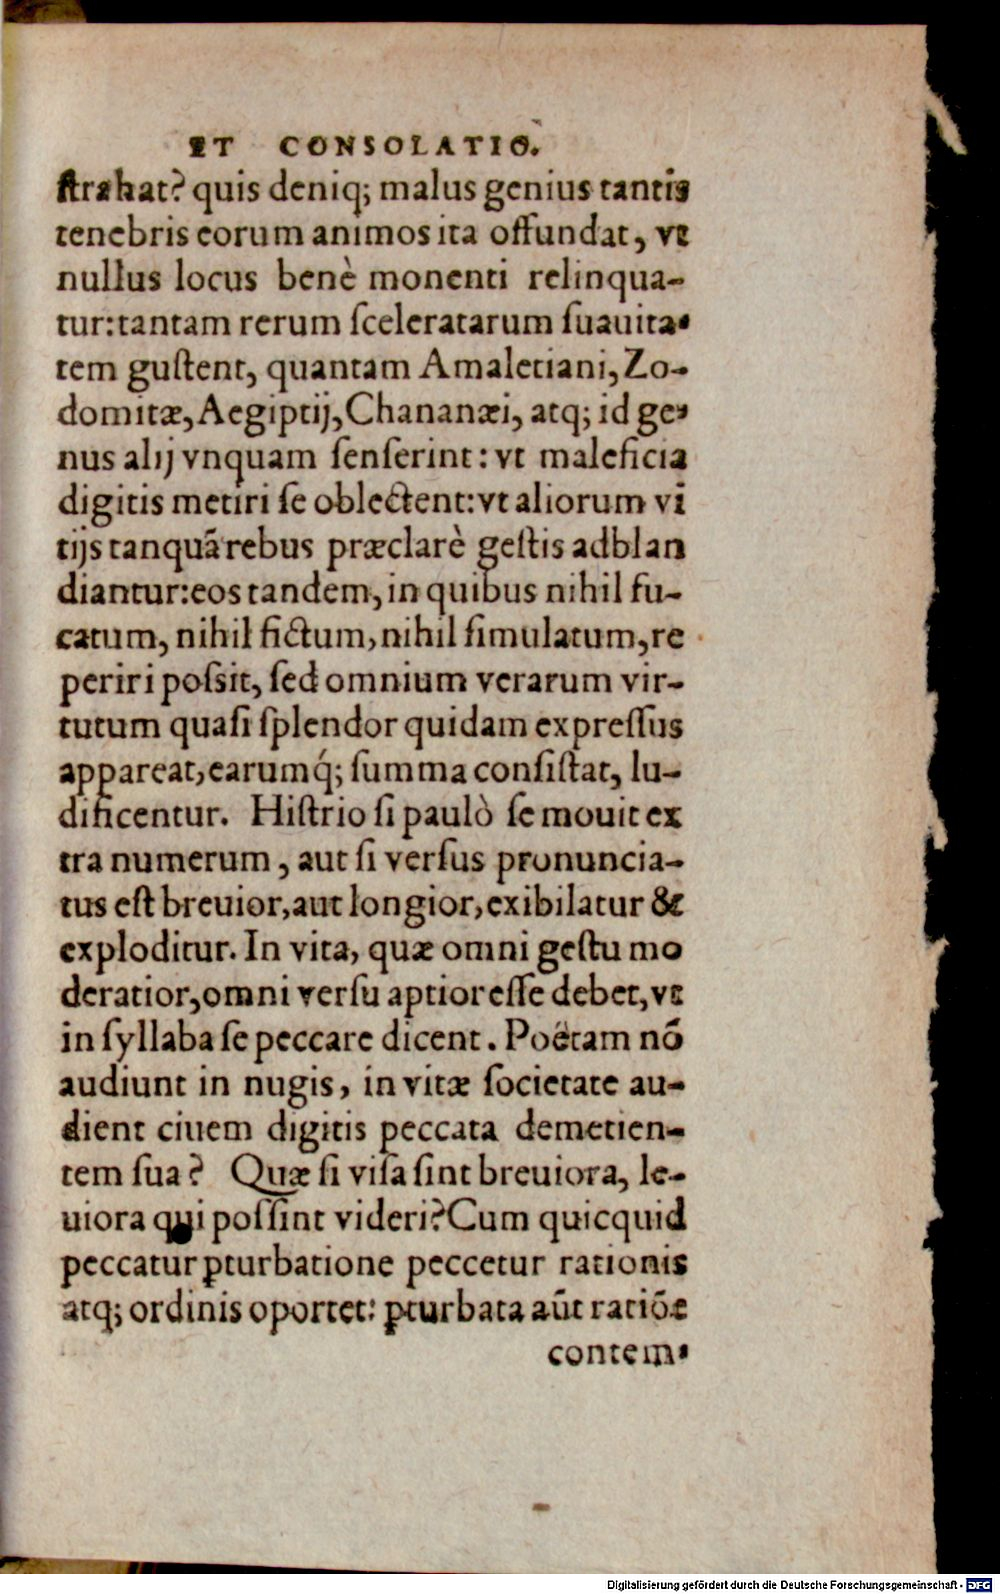 ET CONSOLATIO.
ſtrahat? quis deniq; malus genius tantis
tenebris eorum animos ita offundat, vt
nullus locus benè monenti relinqua-
tur: tantam rerum ſceleratarum ſuauita-
tem guſtent, quantam Amaletiani, Zo-
domitæ, Aegiptij, Chananæi, atq; id ge-
nus alij vnquam ſenſerint: vt maleficia
digitis metiri ſe oblectent: vt aliorum vi
tijs tanquã rebus præclarè geſtis adblan
diantur: eos tandem, in quibus nihil fu-
catum, nihil fictum, nihil ſimulatum, re
periri poſsit, ſed omnium verarum vir-
tutum quaſi ſplendor quidam expreſſus
appareat, earumq́; ſumma conſiſtat, lu-
dificentur. Hiſtrio ſi paulò ſe mouit ex
tra numerum, aut ſi verſus pronuncia-
tus eſt breuior, aut longior, exibilatur &
exploditur. In vita, quæ omni geſtu mo
deratior, omni verſu aptior eſſe debet, vt
in ſyllaba ſe peccare dicent. Poëtam nõ
audiunt in nugis, in vitæ ſocietate au-
dient ciuem digitis peccata demetien-
tem ſua? Quæ ſi viſa ſint breuiora, le-
uiora qui poſſint videri? Cum quicquid
peccatur ꝑturbatione peccetur rationis
atq; ordinis oportet: ꝑturbata aũt ratiõe
contem-
Digitalisierung gefördert durch die Deutsche Forschungsgemeinschaft - DFG